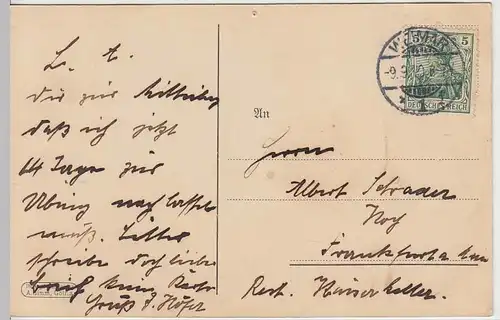 L. A.
Dir zur Mitteilung
daß ich jetzt
14 Tage zur
Übung nach Cassel
muß. Bitte
schreibe doch lieber
brief keine Karte
Gruß
An
Herrn
Albert Schrader
Koch
Frankfurt a. Main
Rest. Kaiserkeller.
WEIMAR
5
DEUTSCHES REICH